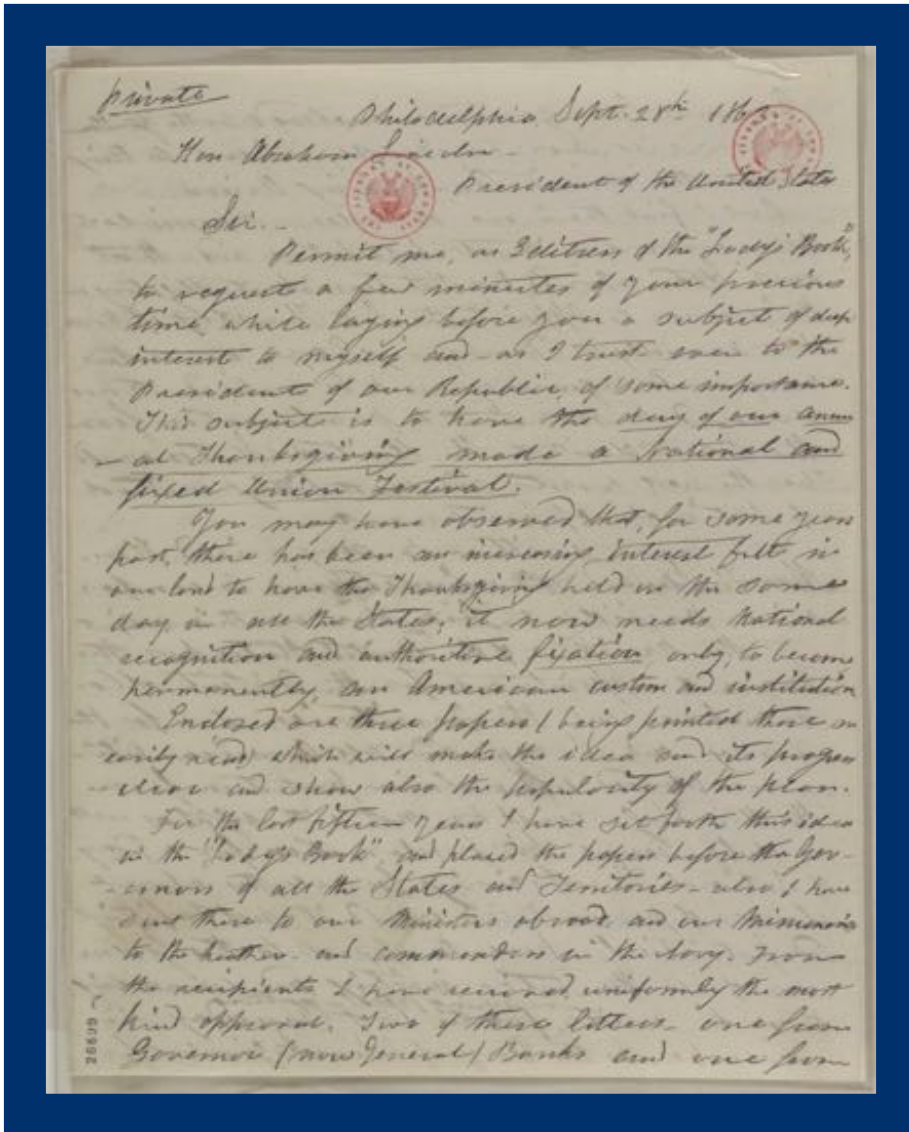 Private
Philadelphia, Sept. 28th 186
Hon. Abraham Lincoln -
President of the United States
Sir. -
Permit me, as Editress of the "Lady's Book",
to request a few minutes of your precious
time, while laying before you a subject of deep
interest to myself and - as I trust - even to the
President of our Republic, of some importance.
This subject is to have the day of our annu
- al Thanksgiving made a National and
fixed Union Festival.
You may have observed that, for some years
past, there has been an increasing interest felt in
our land to have the Thanksgiving held on the same
day, in all the States; it now needs National
recognition and authoritive fixation, only, to become
permanently, an American custom and institution
Enclosed are three papers (being printed these are
easily read) which will make the idea and its progress
clear and show also the popularity of the plan.
For the last fifteen years I have set forth this idea
in the "Lady's Book", and placed the papers before the Gov-
- ernors of all the States and Territories - also I have
sent these to our Ministers abroad, and our Missionaries
to the heathen - and commanders in the Navy. From
the recipients I have received, uniformly the most
kind approval. Two of these letters, one from
Governor (now General) Banks and one from
26699